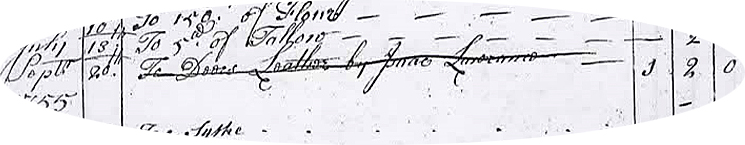 10 To 150. of Flour
July 13 To 5lb of Tallow
Septr 26th To Deer Leather by Isaac Lawrance 1 2 0
1755
To Sythe